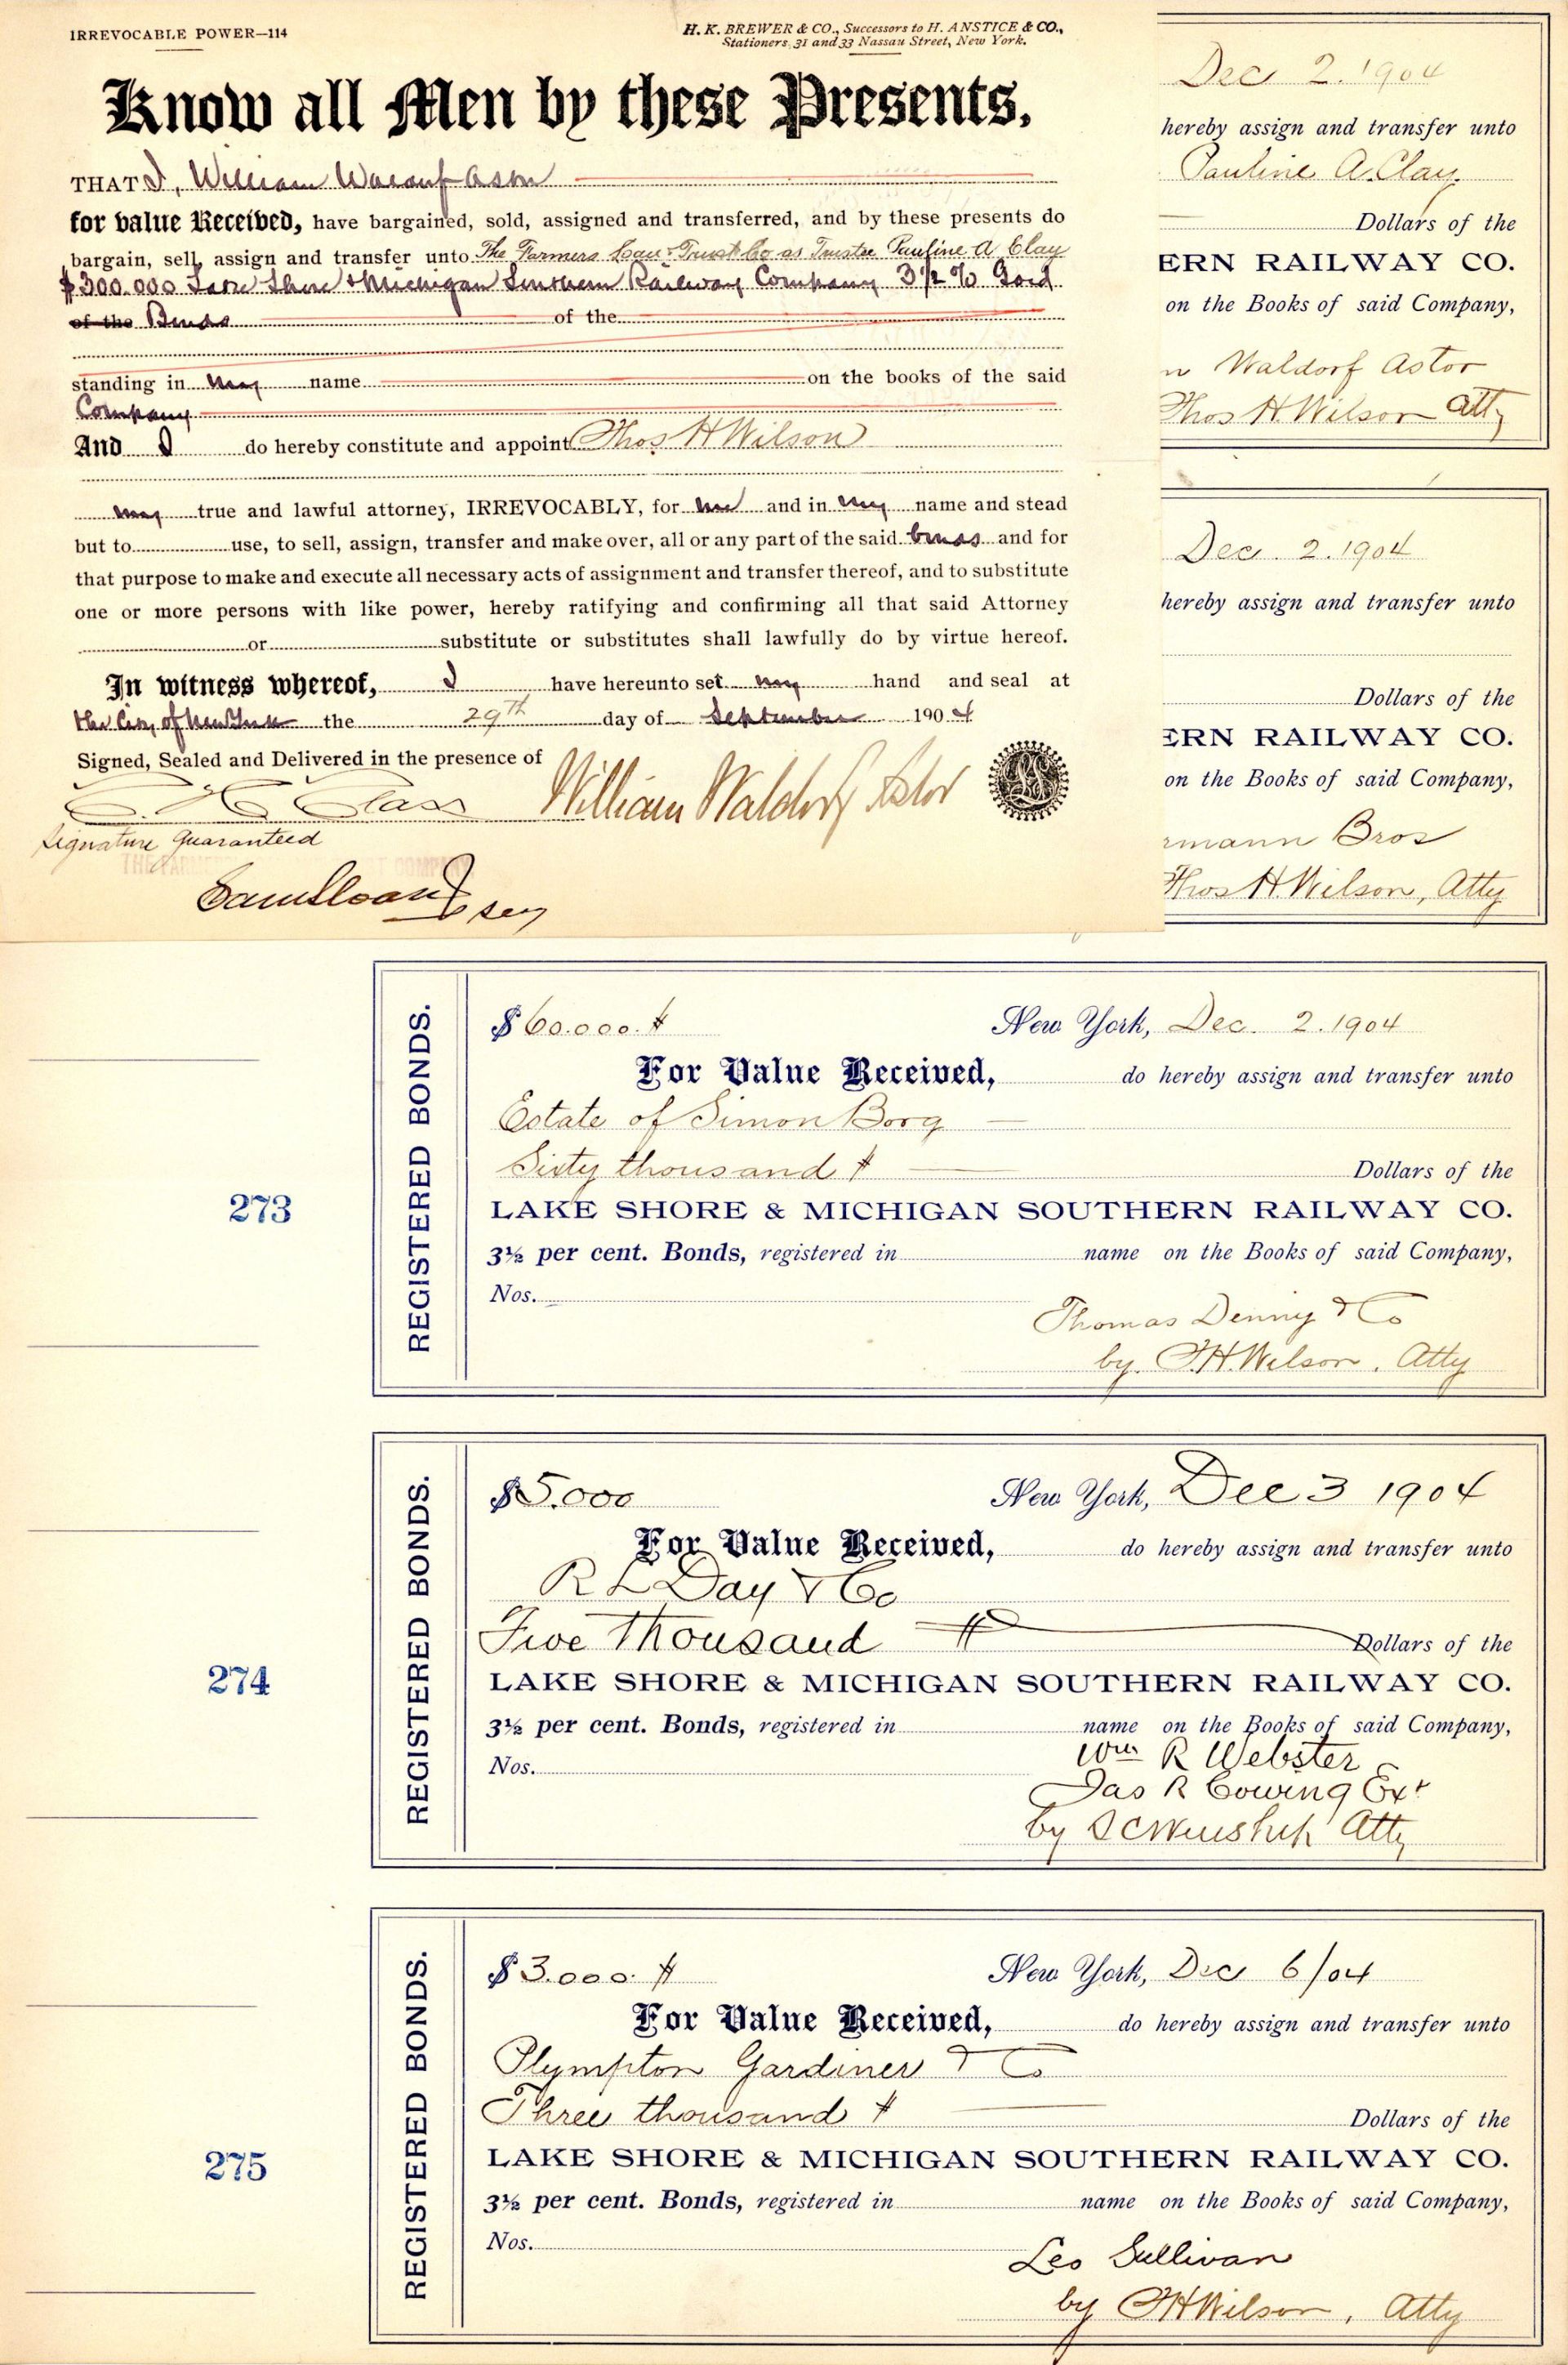 IRREVOCABLE POWER—114
H. K. BREWER & CO., Successors to H. ANSTICE & CO.,
Stationers, 31 and 33 Nassau Street, New York.
Know all Men by these Presents,
THAT I, William Waldorf Astor
for value Received, have bargained, sold, assigned and transferred, and by these presents do
bargain, sell, assign and transfer unto The Farmers Loan & Trust Co as Trustee Pauline A Clay
$300.000 Lake Shore & Michigan Southern Railway Company 3 1/2 % Gold
of the Bonds of the
standing in my name on the books of the said
Company
And I do hereby constitute and appoint Thos H Wilson
my true and lawful attorney, IRREVOCABLY, for me and in my name and stead
but to use, to sell, assign, transfer and make over, all or any part of the said bonds and for
that purpose to make and execute all necessary acts of assignment and transfer thereof, and to substitute
one or more persons with like power, hereby ratifying and confirming all that said Attorney
or substitute or substitutes shall lawfully do by virtue hereof.
In witness whereof, I have hereunto set my hand and seal at
the City of New York the 29th day of September 1904
Signed, Sealed and Delivered in the presence of
William Waldorf Astor
LS
Signature Guaranteed
Dec 2. 1904
hereby assign and transfer unto
Pauline A. Clay
Dollars of the
ERN RAILWAY CO.
on the Books of said Company,
n Waldorf Astor
Thos H. Wilson Atty
Dec. 2. 1904
hereby assign and transfer unto
Dollars of the
ERN RAILWAY CO.
on the Books of said Company,
rmann Bros
Thos H. Wilson, Atty
273
REGISTERED BONDS.
$60.000.
New York, Dec. 2. 1904
For Value Received, do hereby assign and transfer unto
Estate of Simon Borg
Sixty thousand Dollars of the
LAKE SHORE & MICHIGAN SOUTHERN RAILWAY CO.
3½ per cent. Bonds, registered in name on the Books of said Company,
Nos.
Thomas Denny & Co
by T.H. Wilson, Atty
274
REGISTERED BONDS.
$5.000
New York, Dec 3 1904
For Value Received, do hereby assign and transfer unto
R L Day & Co
Five Thousand Dollars of the
LAKE SHORE & MICHIGAN SOUTHERN RAILWAY CO.
3½ per cent. Bonds, registered in name on the Books of said Company,
Nos.
Wm R Webster
Jas R Cowing Exr
by Atty
275
REGISTERED BONDS.
$3.000.
New York, Dec 6/04
For Value Received, do hereby assign and transfer unto
Plympton Gardiner & Co
Three thousand Dollars of the
LAKE SHORE & MICHIGAN SOUTHERN RAILWAY CO.
3½ per cent. Bonds, registered in name on the Books of said Company,
Nos.
Leo Sullivan
by T H Wilson, Atty